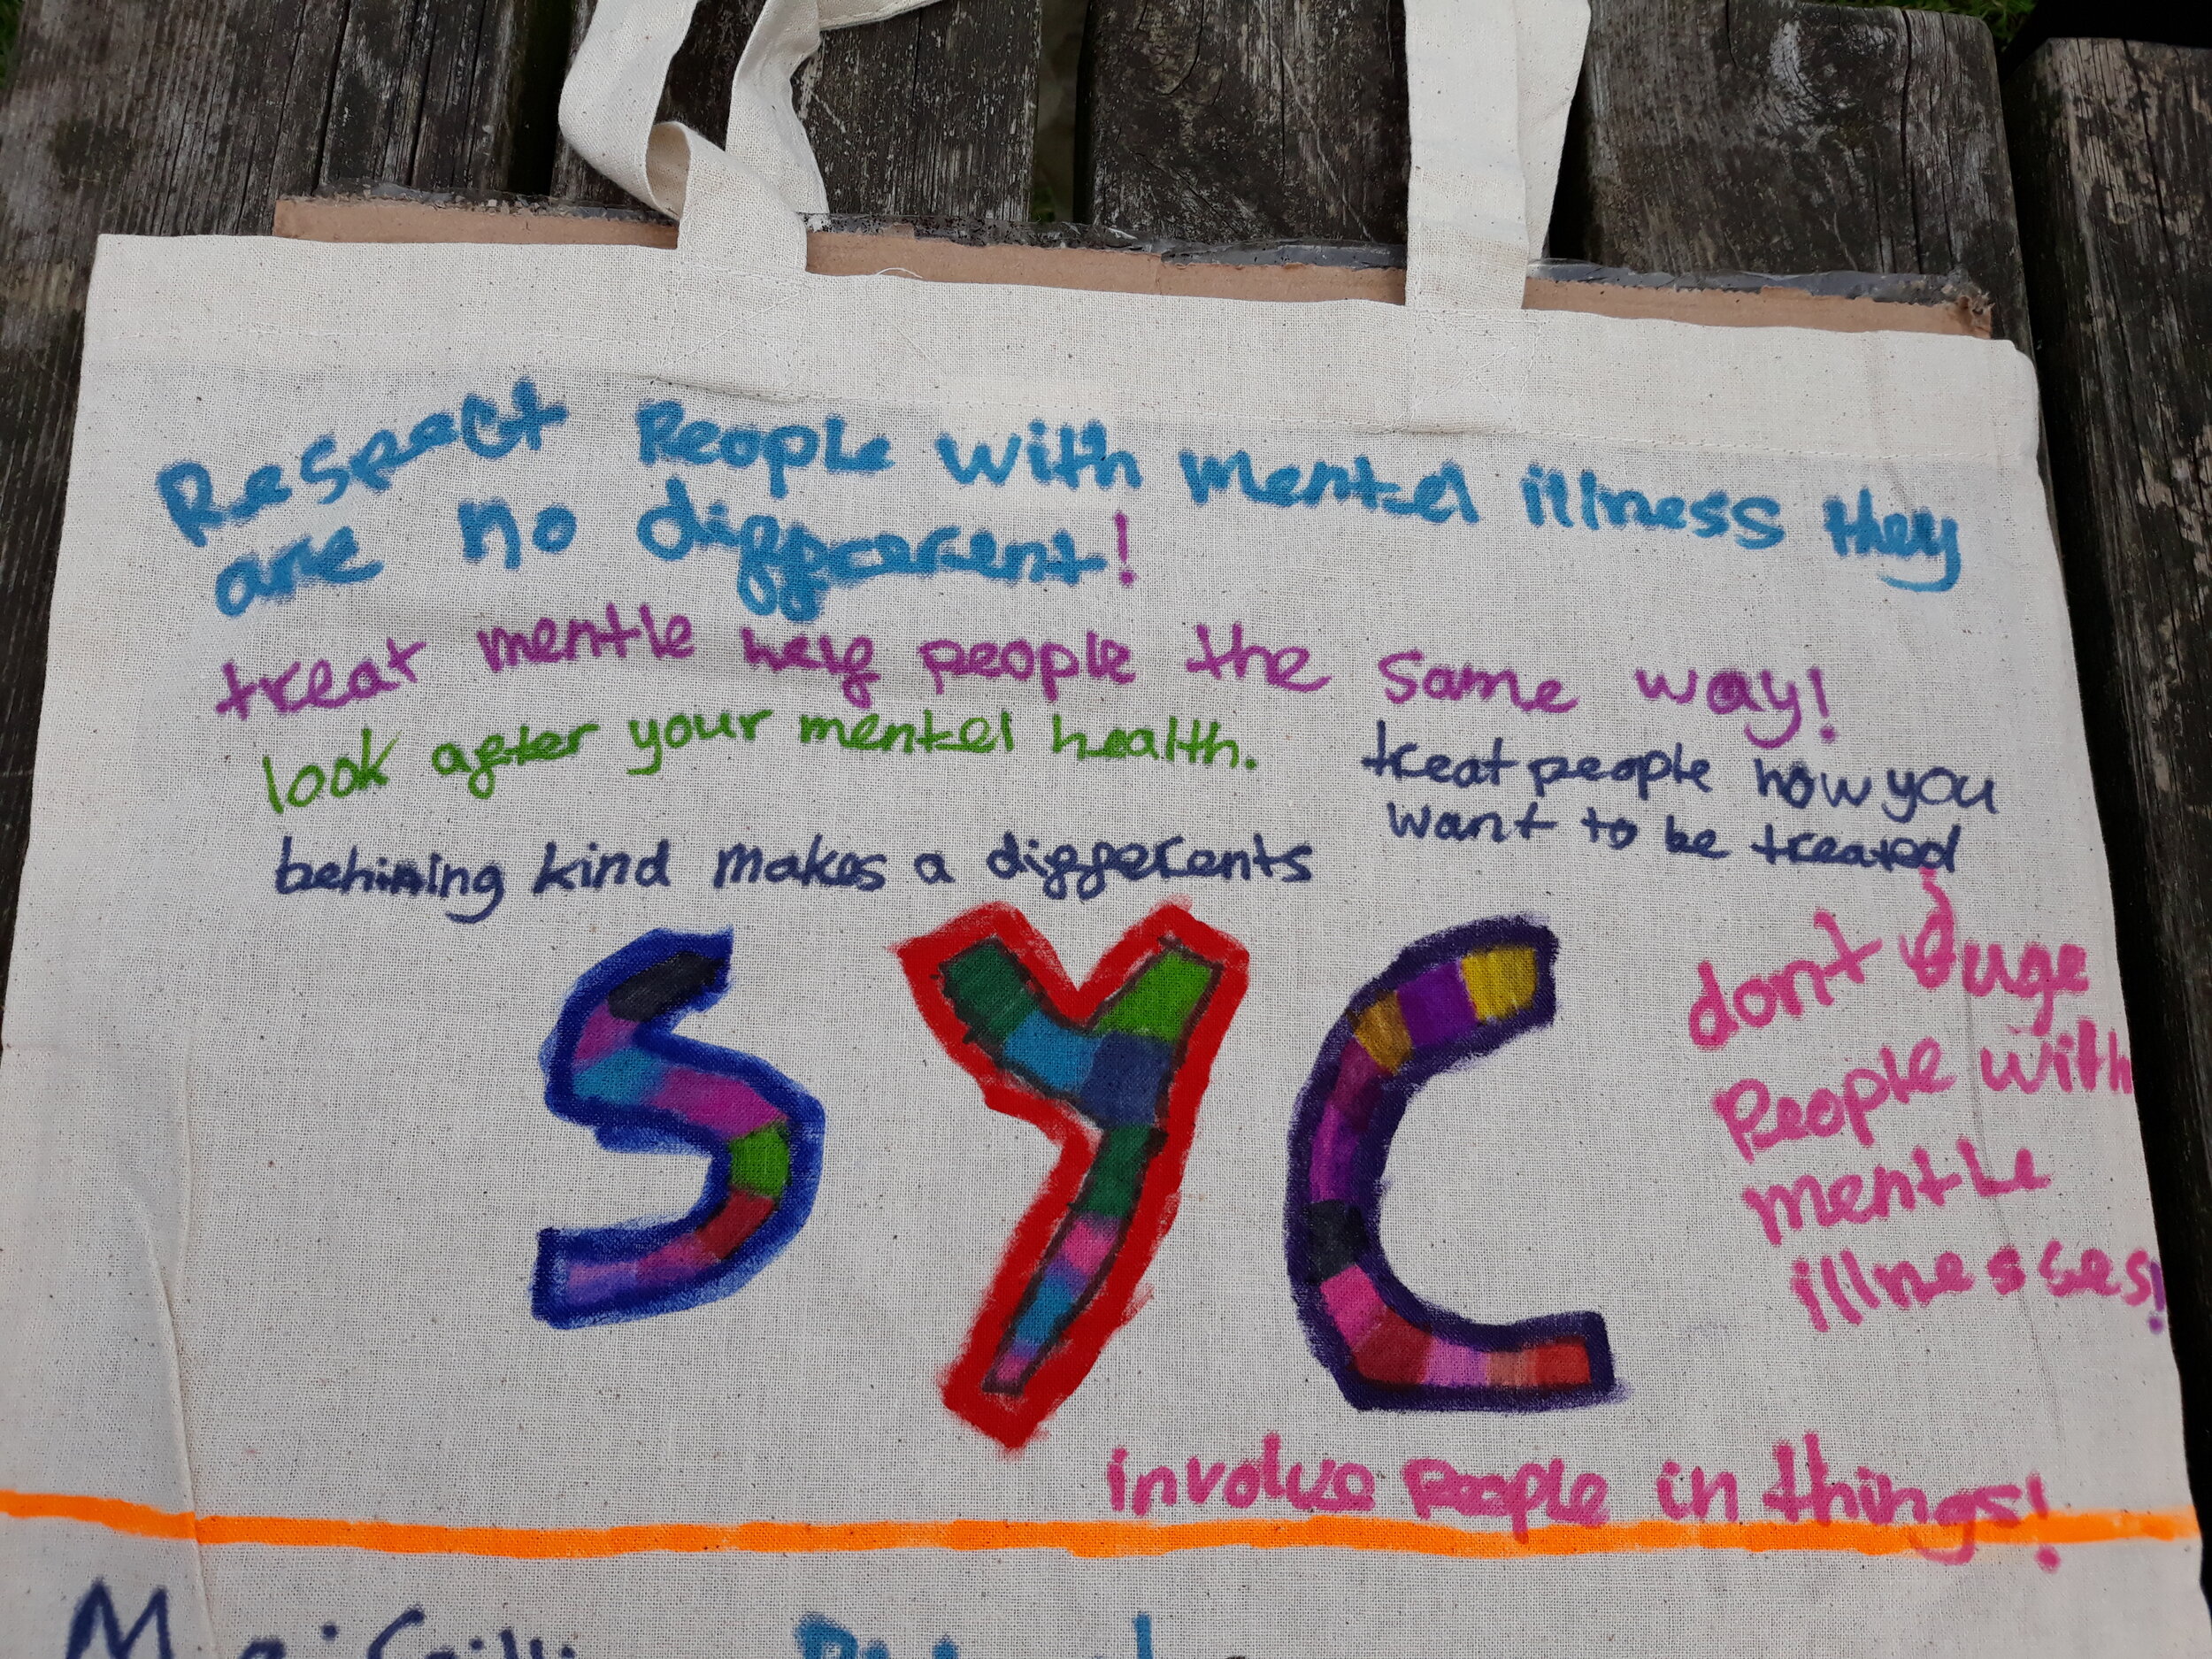 Respect People with mentel illness they
are no diffrearent!
treat mentle hely people the same way!
look after your mentel health.
treat people how you
want to be treated
behining kind makes a differents
SYC
dont Juge
People with
mentle
illnesses!
involve People in things!